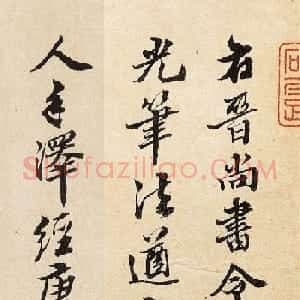 右晋尚書令
光筆法遒
人手澤經唐
Shufaziliao.COM